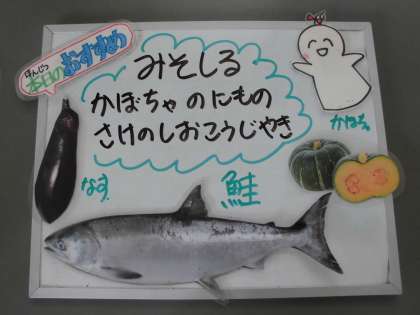 ほんじつ
本日のおすすめ
みそしる
かぼちゃのにもの
さけのしおこうじやき
かぼちゃ
なす
鮭